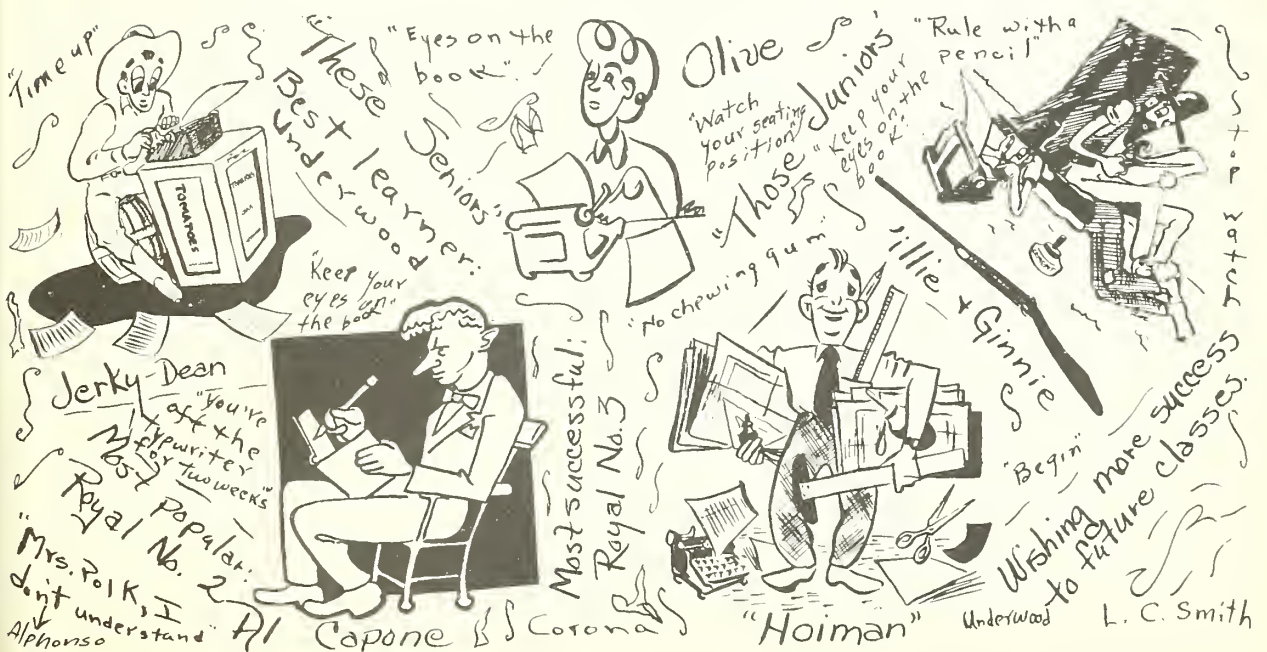 "Time up"
"These Seniors"
Best learner:
Underwood
"Eyes on the
book".
Olive
"Watch
your seating
position"
"Those Juniors"
"Keep your
eyes on the
book"
"Rule with a
pencil"
Stop watch
TOMATOES
"Keep your
eyes on
the book"
"No chewing gum"
'illie & Ginnie
Jerky Dean
"You're
off the
typewriter
for two weeks"
Most Popular:
Royal No. 2
"Mrs. Polk, I
don't understand"
Alphonso
Al Capone
Most successful:
Royal No. 3
Corona
"Hoiman"
"Begin"
Wishing more success
to future classes.
Underwood
L. C. Smith